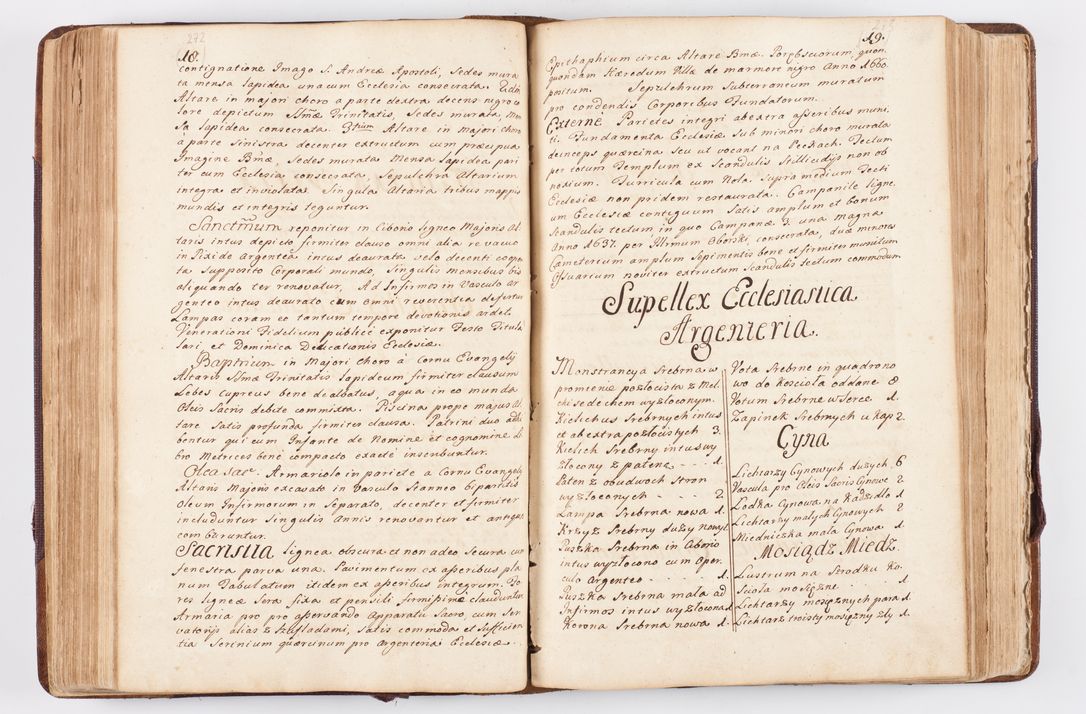 272
18.
contignatione Imago S. Andreæ Apostoli, Sedes mura
ta mensa lapidea una cum Ecclesia consecrata.
Altare in majori choro a parte dextra decens nigro co
lore depictum SSmæ Trinitatis, Sedes murata, Men
sa lapidea consecrata. Altare in majori choro
à parte sinistra decenter extructum cum præcipua
Imagine Bmæ, Sedes murata Mensa lapidea pari
ter cum Ecclesia consecrata, Sepulchra Altarium
integra et inviolata. Singula Altaria tribus mappis
mundis et integris teguntur.
Sanctmum reponitur in Ciborio ligneo Majoris Al
taris intus depicto firmiter clauso omni alia re vacuo
in Pixide Argentea intus deaurata velo decenti coope
ta Supposito Corporali mundo, Singulis mensibus bis
aliquando ter renovatur. Ad Infirmos in Vasculo Ar
genteo intus deaurato cum omni reverentia defertur
Lampas coram eo tantum tempore devotionis ardet.
Venerationi Fidelium publicè exponitur Festo Titula
lari et Dominica Dedicationis Ecclesiæ.
Baptrium in Majori choro à Cornu Evangelij
Altaris SSmæ Trinitatis lapideum firmiter clausum
Lebes cupreus bene dealbatus, aqua in eo munda
Oleis Sacris debite commixta. Piscina prope majus Al
tare Satis profunda firmiter clausa. Patrini duo adhi
bentur qui cum Infante de Nomine et cognomine li
bro Metrices bene compacto exacte inscribuntur.
Olea Sac. Armariolo in pariete a Cornu Evangelij
Altaris Majoris excavato in Vasculo Stanneo bipartitis
Oleum Infirmorum in Separato, decenter et firmiter
includuntur Singulis Annis renovantur et antiqua
comburuntur.
Sacristia lignea obscura et non adeo Secura cum
fenestra parva una. Pavimentum ex asseribus pla
num Tabulatum itidem ex asseribus integrum. Fo
res ligneæ Sera fixa et pensili firmissime clauduntur
Armaria pro pro asservando Apparatu Sacro, cum Ser
vatorijs alias z Szufladami, Satis commoda et Sufficien
tia Scrinium quærnum pro Argenteria Ecclesiæ
19.
Epithaphium circa Altare Bmæ. Porębscorum quon
quondam Hæredum Villæ de marmore nigro Anno 1660.
positum. Sepulchrum Subterraneum muratum
pro condendis Corporibus Fundatorum.
Externè Parietes integri ab extra asseribus muni
ti. Fundamenta Ecclesiæ Sub minori choro murata
deinceps quærcina seu ut vocant na Peckach. Tectum
per totum Templum ex Scandulis Stillicidijs non ob
noxium. Turricula cum Nola. Supra medium Tecti
Ecclesiæ non pridem restaurata. Campanile ligne
um Ecclesiæ contiguum Satis amplum et bonum
Scandulis tectum in quo Campanæ 3. una magna
Anno 1637. per Illrmum Oborski, consecrata, duæ minores
Cæmeterium amplum Sepimentis bene et firmiter munitum
Ossuarium noviter extructum Scandulis tectum commodum
Supellex Ecclesiastica
Argenteria.
Monstrancya Srebrna w
promienie pozłocista z Mel
chisedechem wyzłoconym.
Kielichow Srebrnych intus
et ab extra pozłocistych 3.
Kielich Srebrny intus wy
złocony z pateną 1.
Paten z obudwoch Stron
wyzłoconych 2.
Lampa Srebrna nowa 1.
Krzyż Srebrny duży nowy 1.
Puszka Srebrna in Ciborio
intus wyzłocono cum Oper
culo Argenteo 1.
Puszka Srebrna mala ad
Infirmos intus wyzłocona 1.
Korona Srebrna nowa 1.
Vota Srebrne in quadrono
wo do Kosciola oddane 8
Votum Srebrne w Serce 1.
Zapinek Srebrnych u Kap 2.
Cyna
Lichtarzy Cynowych dużych 6
Vascula pro Oleis Sacris Cynowe 2
Lodka Cynowa na Kadzidlo 1
Lichtarzy malych Cynowych 2
Miedniczka mala Cynowa 1.
Mosiądz Miedz.
Lustrum na Srodku Ko.
Sciola mosiężne 1.
Lichtarzy mosiężnych para 1.
Lichtarz troisty mosiężny zly 1.